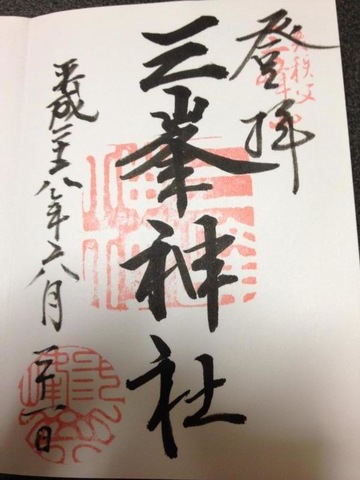 奥秩父
登拝
三峯神社
平成二十八年六月二十一日